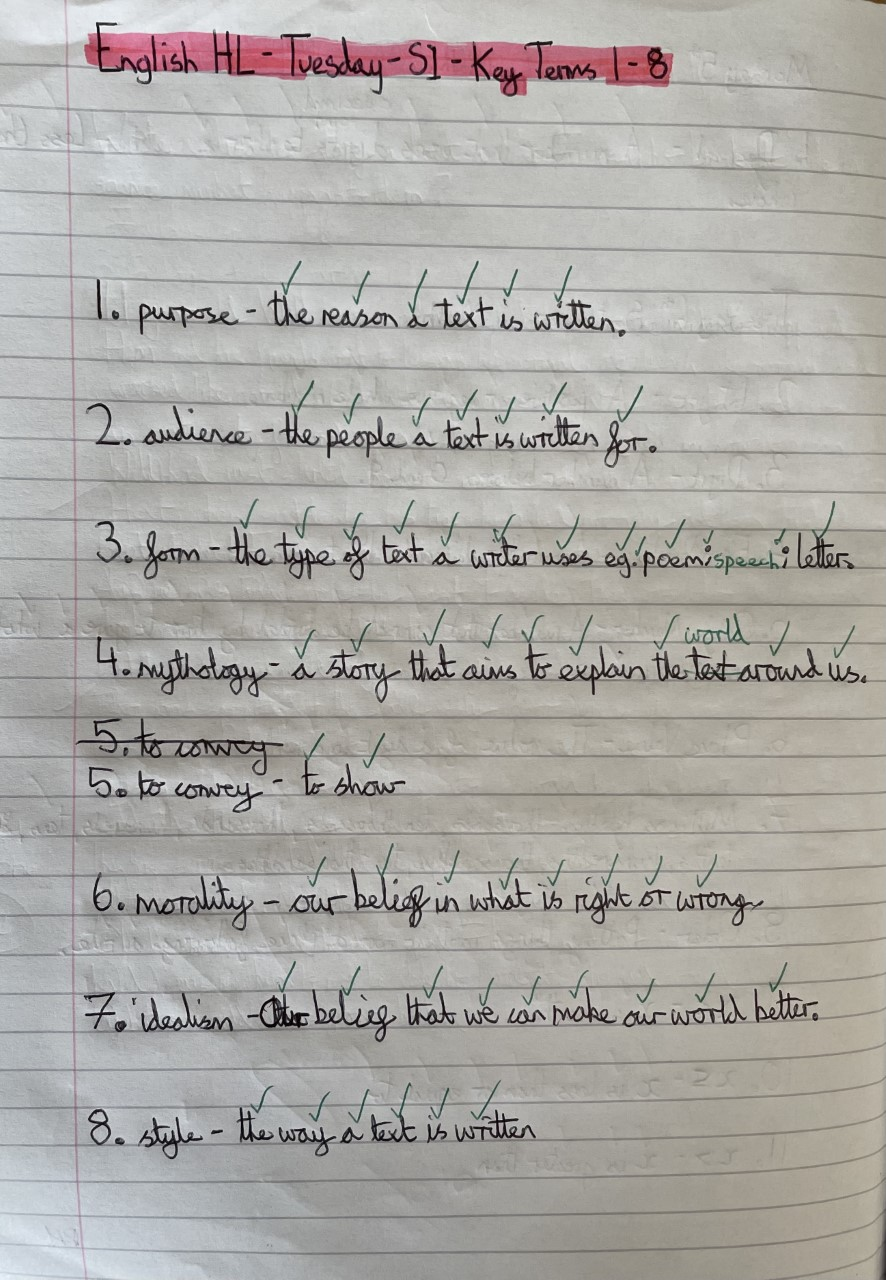 English HL - Tuesday - S1 - Key Terms 1 - 8
1. purpose - the reason a text is written.
2. audience - the people a text is written for.
3. form - the type of text a writer uses eg: poem; speech; letter.
world
4. mythology - a story that aims to explain the text around us.
5. to convey
5. to convey - to show
6. morality - our belief in what is right or wrong
7. idealism - Our belief that we can make our world better.
8. style - the way a text is written